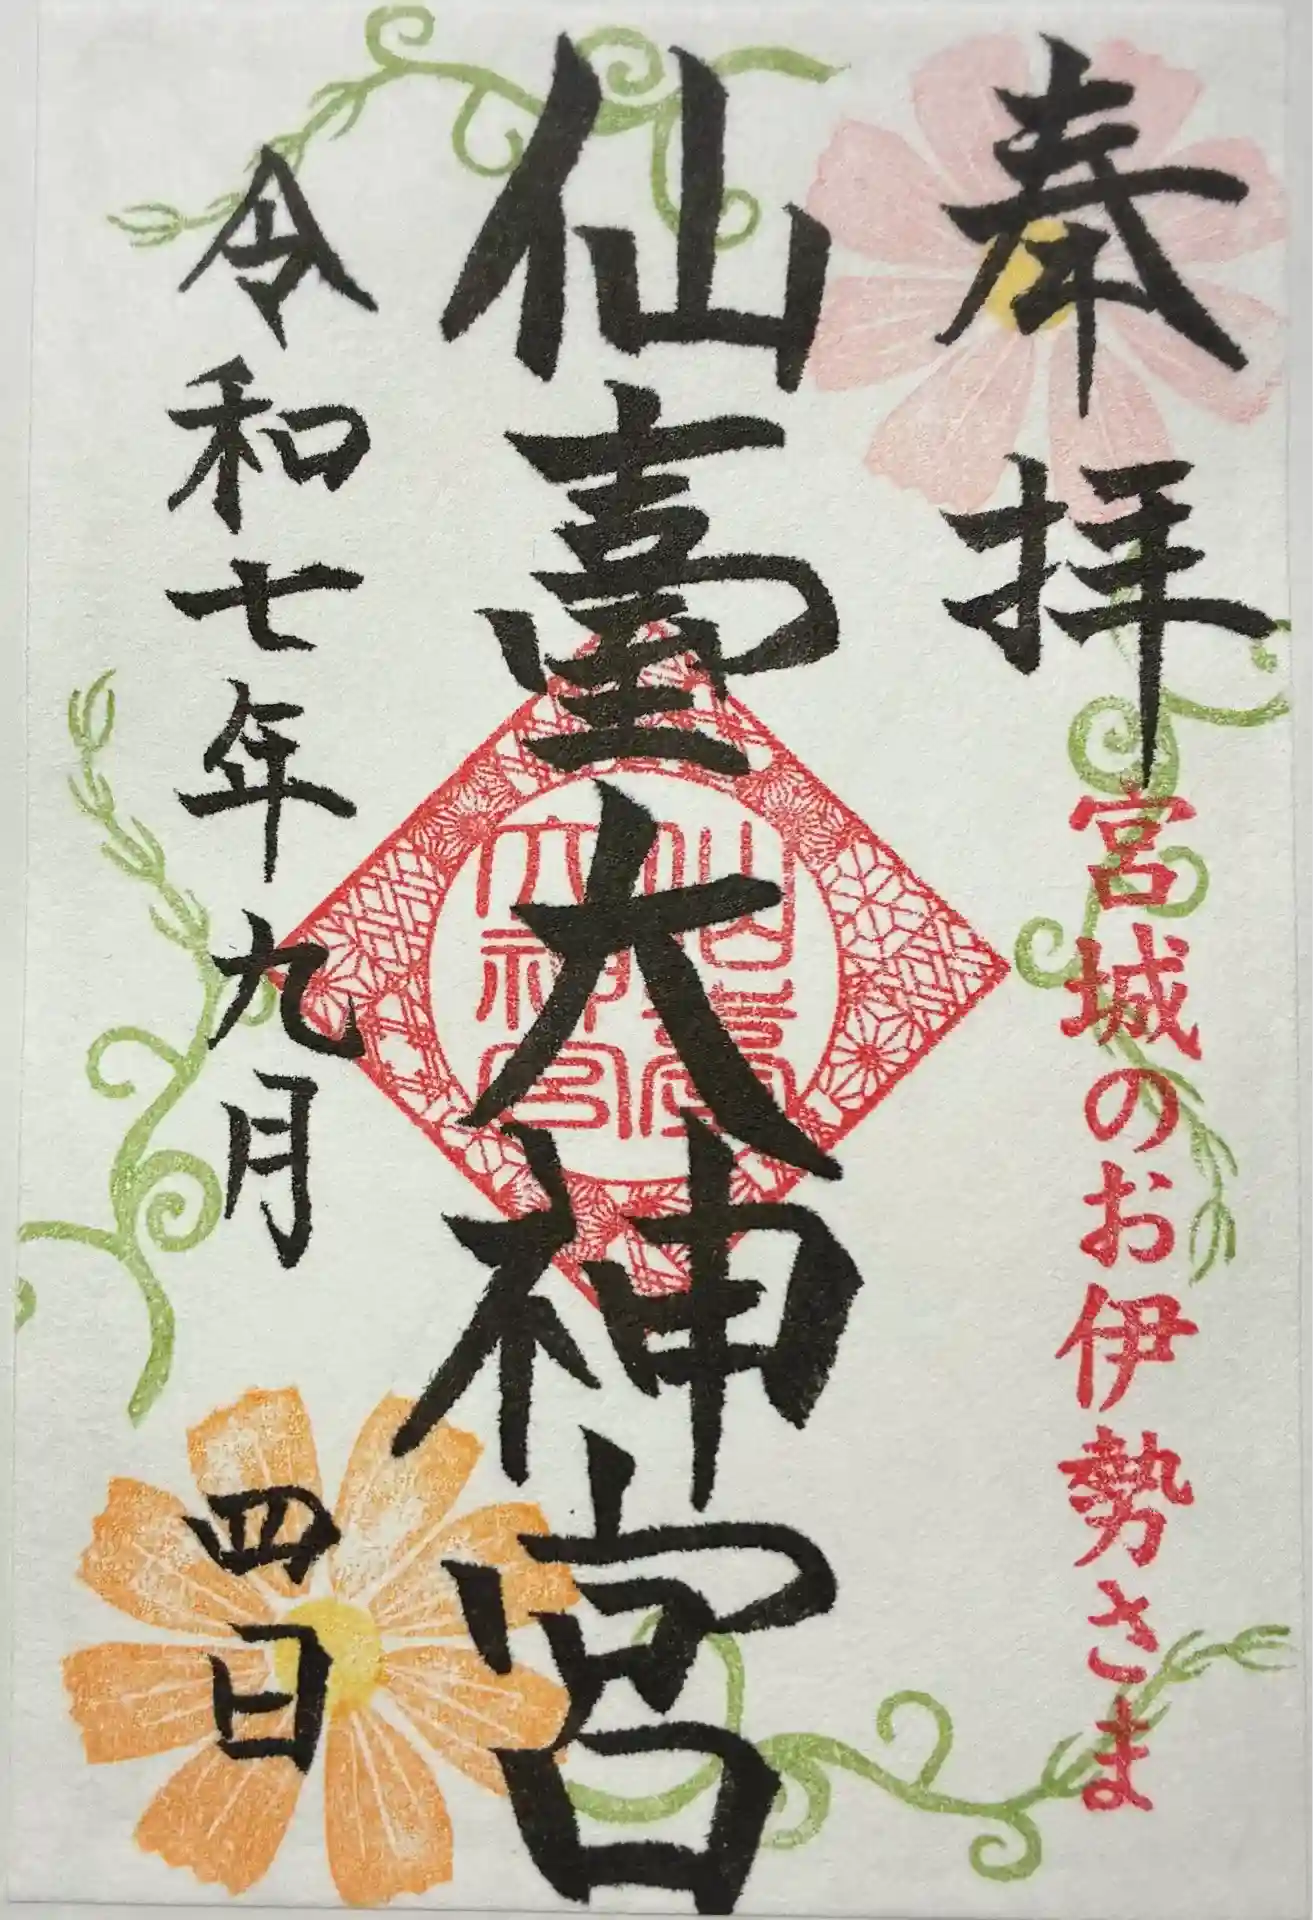 奉拝
宮城のお伊勢さま
仙臺大神宮
仙臺
大神宮
令和七年九月四日